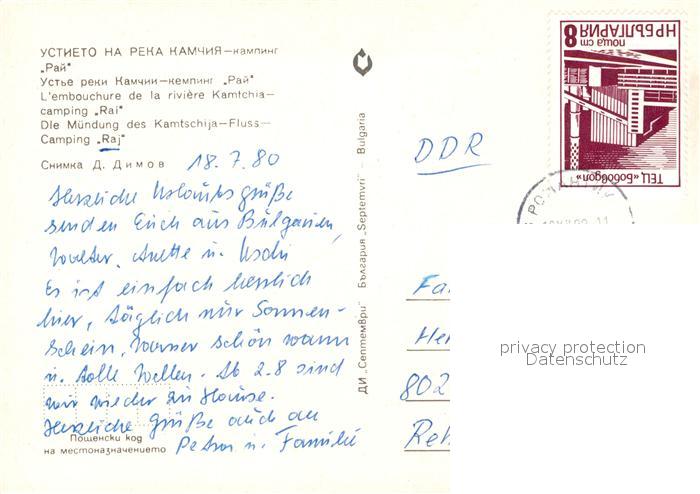 УСТИЕТО НА РЕКА КАМЧИЯ—кампинг
„Рай“
Устье реки Камчии—кемпинг „Рай“
L'embouchure de la rivière Kamtchia—
camping „Rai“
Die Mündung des Kamtschija—Fluss—
Camping „Raj“
Снимка Д. Димов
18.7.80
Herzliche Urlaubsgrüße
senden Euch aus Bulgarien,
Walter, Anette u. Uschi
Es ist einfach herrlich
hier, täglich nur Sonnen-
schein, Wasser schön warm
u. tolle Wellen. Ab 2.8 sind
wir wieder zu Hause.
Herzliche Grüße auch an
Petra u. Familie
Пощенски код
на местоназначението
ДИ „Септември“ България „Septemvri“ Bulgaria
НР БЪЛГАРИЯ
поща ст 8
ТЕЦ «Бобовдол»
DDR
Fa
He
802
Reh
privacy protection
Datenschutz